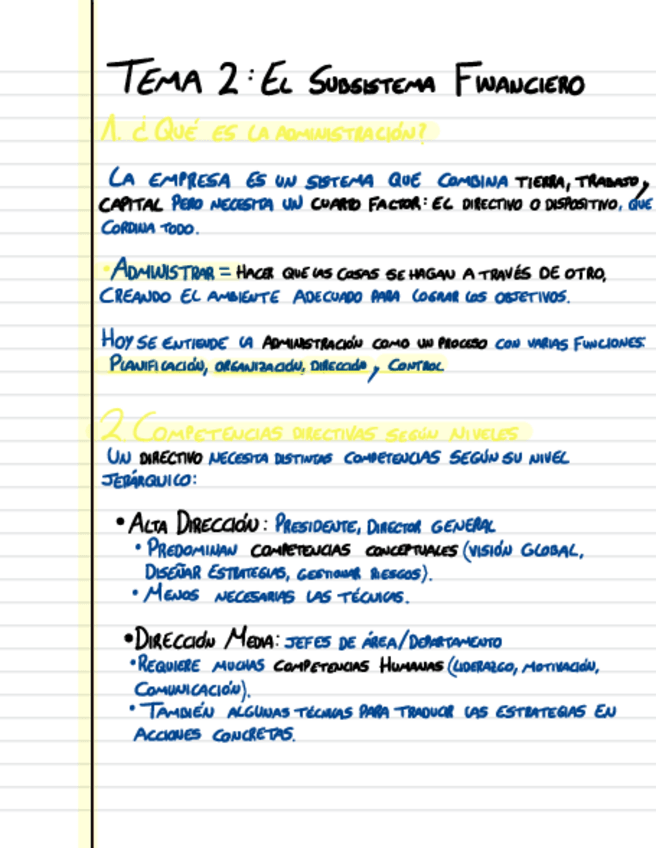 TEMA 2: EL SUBSISTEMA FINANCIERO
1. ¿QUÉ ES LA ADMINISTRACIÓN?
LA EMPRESA ES UN SISTEMA QUE COMBINA TIERRA, TRABAJO,
CAPITAL PERO NECESITA UN CUARTO FACTOR: EL DIRECTIVO O DISPOSITIVO, QUE
CORDINA TODO.
• ADMINISTRAR = HACER QUE LAS COSAS SE HAGAN A TRAVÉS DE OTRO,
CREANDO EL AMBIENTE ADECUADO PARA LOGRAR LOS OBJETIVOS.
HOY SE ENTIENDE LA ADMINISTRACIÓN COMO UN PROCESO CON VARIAS FUNCIONES:
PLANIFICACIÓN, ORGANIZACIÓN, DIRECCIÓN, CONTROL
2 COMPETENCIAS DIRECTIVAS SEGÚN NIVELES
UN DIRECTIVO NECESITA DISTINTAS COMPETENCIAS SEGÚN SU NIVEL
JERÁRQUICO:
• ALTA DIRECCIÓN: PRESIDENTE, DIRECTOR GENERAL
• PREDOMINAN COMPETENCIAS CONCEPTUALES (VISIÓN GLOBAL,
DISEÑAR ESTRATEGIAS, GESTIONAR RIESGOS).
• MENOS NECESARIAS LAS TÉCNICAS.
• DIRECCIÓN MEDIA: JEFES DE ÁREA/DEPARTAMENTO
• REQUIERE MUCHAS COMPETENCIAS HUMANAS (LIDERAZGO, MOTIVACIÓN,
COMUNICACIÓN).
• TAMBIÉN ALGUNAS TÉCNICAS PARA TRADUCIR LAS ESTRATEGIAS EN
ACCIONES CONCRETAS.